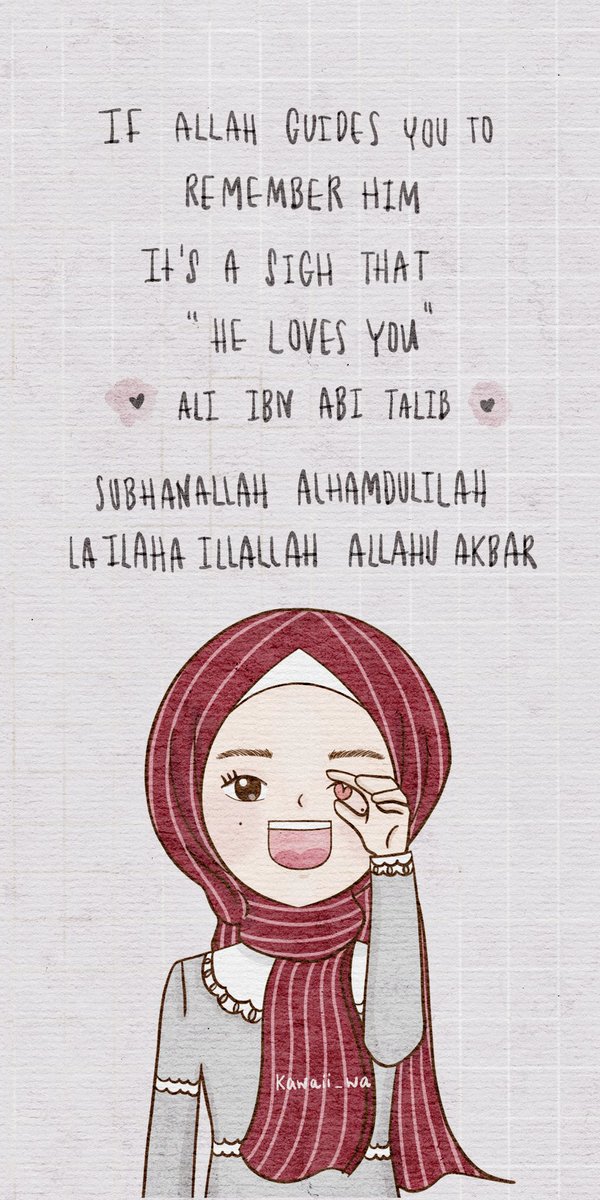 IF ALLAH GUIDES YOU TO
REMEMBER HIM
It'S A SIGH THAT
"HE LOVES YOU"
ALI IBN ABI TALIB
SUBHANALLAH ALHAMDULILAH
LA ILAHA ILLALLAH ALLAHU AKBAR
Kawaii_wa